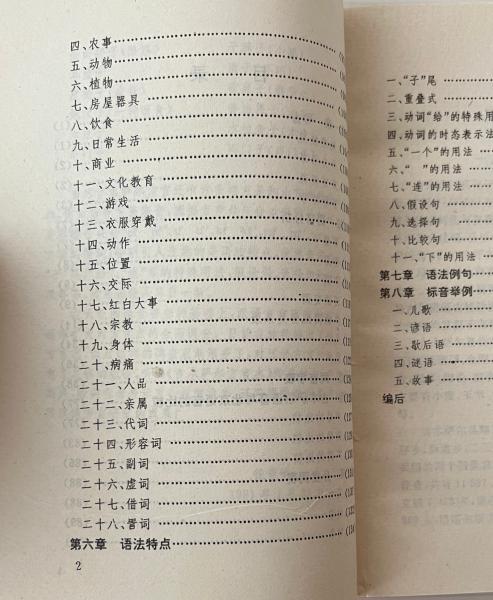 四、农事
五、动物
六、植物
七、房屋器具
八、饮食
九、日常生活
十、商业
十一、文化教育
十二、游戏
十三、衣服穿戴
十四、动作
十五、位置
十六、交际
十七、红白大事
十八、宗教
十九、身体
二十、病痛
二十一、人品
二十二、亲属
二十三、代词
二十四、形容词
二十五、副词
二十六、虚词
二十七、借词
二十八、詈词
第六章 语法特点
2
一、“子”尾
二、重叠式
三、动词“给”的特殊用
四、动词的时态表示法
五、“一个”的用法
六、“ ”的用法
七、“连”的用法
八、假设句
九、选择句
十、比较句
十一、“下”的用法
第七章 语法例句
第八章 标音举例
一、儿歌
二、谚语
三、歇后语
四、谜语
五、故事
编后